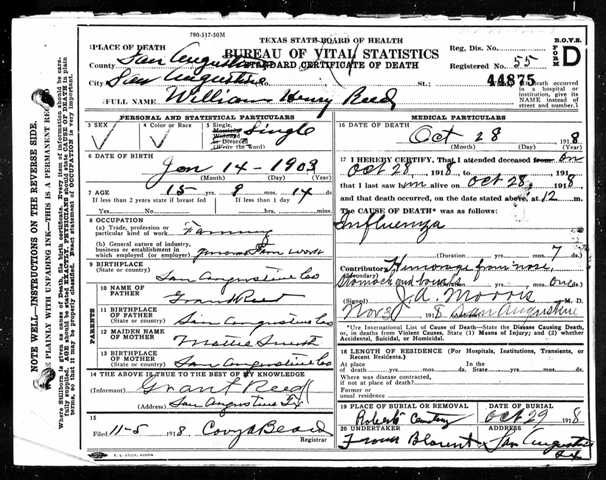 780-317-50M
TEXAS STATE BOARD OF HEALTH
BUREAU OF VITAL STATISTICS
STANDARD CERTIFICATE OF DEATH
B.O.V.S.
FORM D
Reg. Dis. No.
Registered No. 55
44875
1 PLACE OF DEATH
County San Augustine
City San Augustine
St.:
(If death occurred in a hospital or institution, give its NAME instead of street and number.)
2 FULL NAME William Henry Reed
NOTE WELL—INSTRUCTIONS ON THE REVERSE SIDE.
WRITE PLAINLY WITH UNFADING INK—THIS IS A PERMANENT RECORD
PERSONAL AND STATISTICAL PARTICULARS
3 SEX
4 Color or Race
5 Single, Married, Widowed or Divorced (Write the word) Single
6 DATE OF BIRTH
Jan 14-1903
(Month) (Day) (Year)
7 AGE 15 yrs. 8 mos. 14 ds.
If less than 2 years state if breast fed
Yes No
If less than 1 day
hrs. min.
8 OCCUPATION
(a) Trade, profession or particular kind of work Farming
(b) General nature of industry, business or establishment in which employed (or employer) General Farm work
9 BIRTHPLACE
(State or country) San Augustine Co
PARENTS
10 NAME OF FATHER Grant Reed
11 BIRTHPLACE OF FATHER
(State or country) San Augustine Co
12 MAIDEN NAME OF MOTHER Mattie
13 BIRTHPLACE OF MOTHER
(State or country) San Augustine Co
14 THE ABOVE IS TRUE TO THE BEST OF MY KNOWLEDGE
(Informant) Grant Reed
(Address) San Augustine Tx
15
Filed 11-5 1918 Beard
Registrar
MEDICAL PARTICULARS
16 DATE OF DEATH
Oct 28 1918
(Month) (Day) (Year)
17 I HEREBY CERTIFY, That I attended deceased from on
Oct 28, 1918 1918
that I last saw him alive on Oct 28, 1918
and that death occurred, on the date stated above, at 12 m.
The CAUSE OF DEATH* was as follows:
Influenza
(Duration) yrs. mos. 7 ds.
Contributory Hemorrage from nose,
(Secondary) stomach and bowels
(Duration) yrs. mos. one ds.
(Signed) J. A. Morris M. D.
Nov 3 1918 (Address) San Augustine
*Use International List of Causes of Death—State the Disease Causing Death, or, in deaths from Violent Causes, State (1) Means of Injury; and (2) whether Accidental, Suicidal, or Homicidal.
18 LENGTH OF RESIDENCE (For Hospitals, Institutions, Transients, or Recent Residents.)
At place of death yrs. mos. ds. State yrs. mos. ds.
Where was disease contracted, if not at place of death?
Former or usual residence
19 PLACE OF BURIAL OR REMOVAL
Roberts Cemetery
DATE OF BURIAL
Oct 29 1918
20 UNDERTAKER
Frank
ADDRESS
San Augustine
Tex